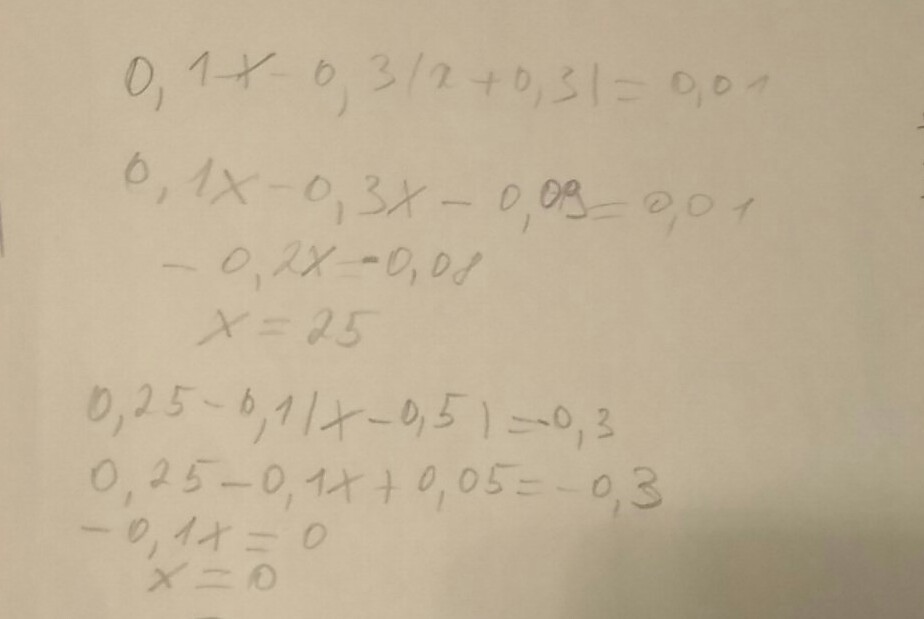 0,1x - 0,3(x + 0,3) = 0,01
0,1x - 0,3x - 0,09 = 0,01
- 0,2x = -0,08
x = 25
0,25 - 0,1(x - 0,5) = -0,3
0,25 - 0,1x + 0,05 = -0,3
- 0,1x = 0
x = 0